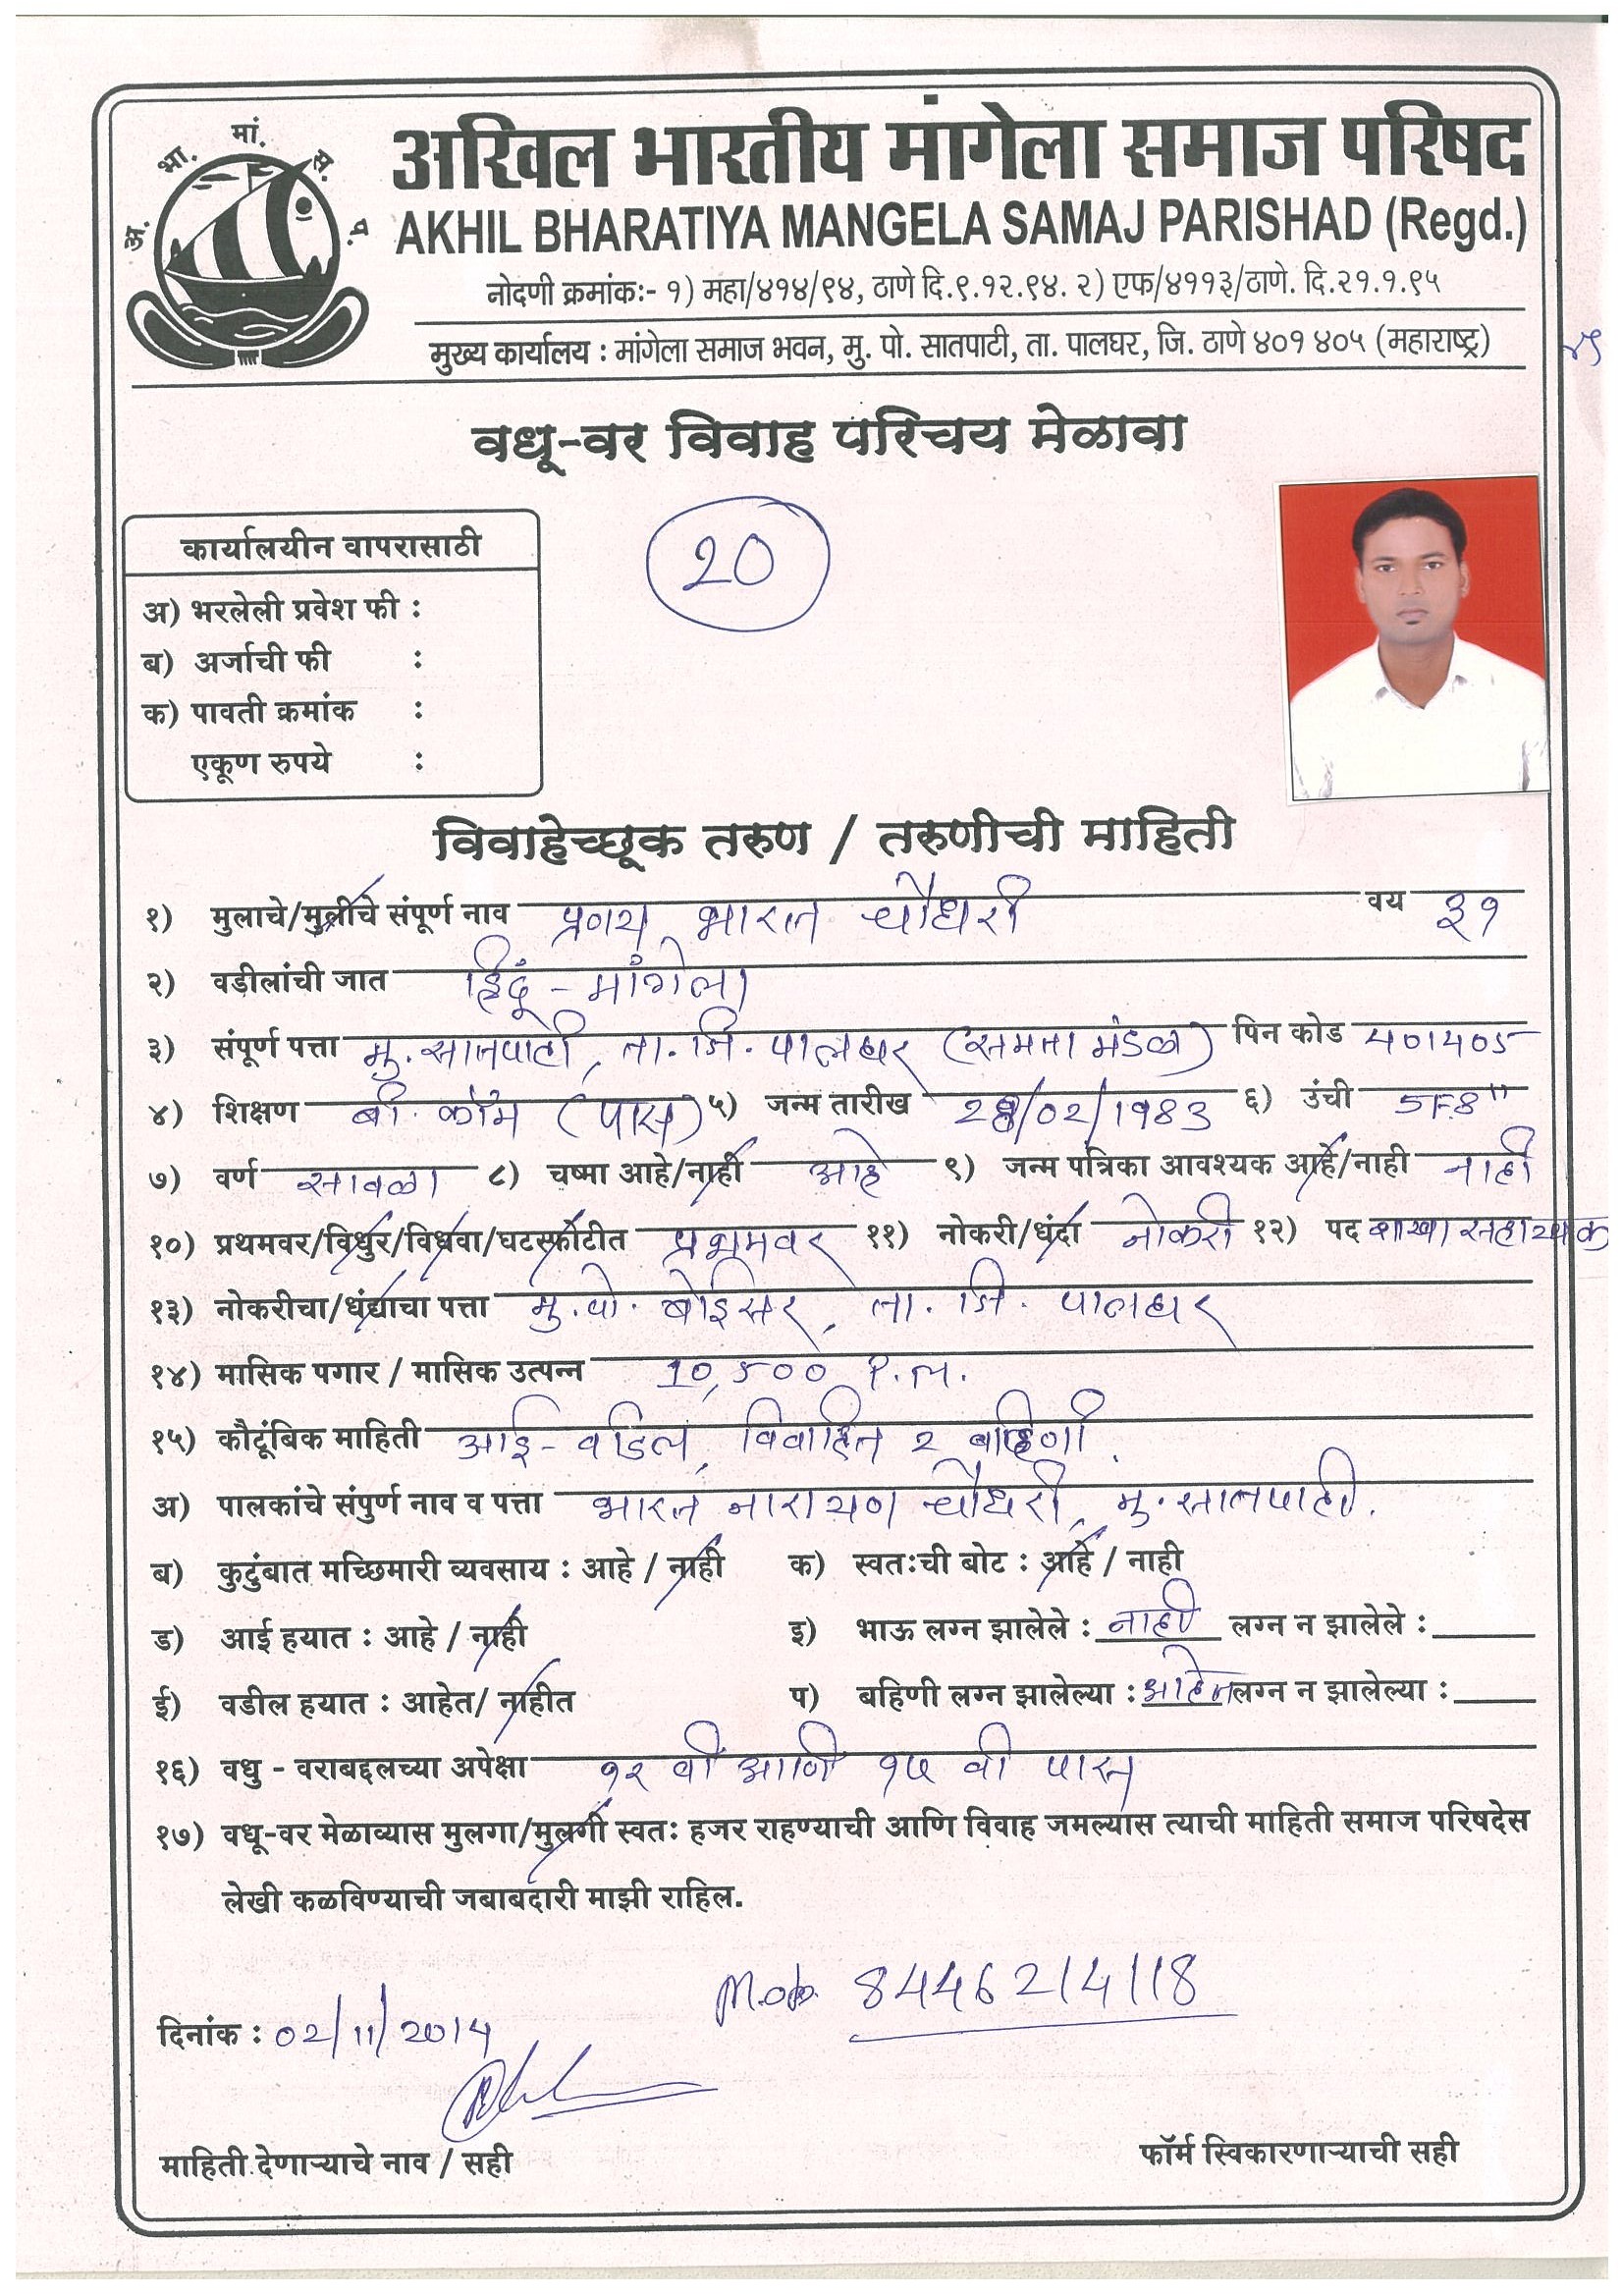 अ. भा. मां. स. प.
अखिल भारतीय मांगेला समाज परिषद
AKHIL BHARATIYA MANGELA SAMAJ PARISHAD (Regd.)
नोदणी क्रमांकः- १) महा/४१४/९४, ठाणे दि.९.१२.९४. २) एफ/४११३/ठाणे. दि.२१.१.९५
मुख्य कार्यालय : मांगेला समाज भवन, मु. पो. सातपाटी, ता. पालघर, जि. ठाणे ४०१ ४०५ (महाराष्ट्र)
वधू-वर विवाह परिचय मेळावा
20
कार्यालयीन वापरासाठी
अ) भरलेली प्रवेश फी :
ब) अर्जाची फी :
क) पावती क्रमांक :
एकूण रुपये :
विवाहेच्छूक तरुण / तरुणीची माहिती
१) मुलाचे/मुलीचे संपूर्ण नाव प्रणय भारत चौधरी वय ३१
२) वडीलांची जात हिंदू - मांगेला
३) संपूर्ण पत्ता मु. सातपाटी, ता. जि. पालघर (समता मंडळ) पिन कोड 401405
४) शिक्षण बी. कॉम (पास) ५) जन्म तारीख 28/02/1983 ६) उंची 5F.8"
७) वर्ण सावळा ८) चष्मा आहे/नाही आहे ९) जन्म पत्रिका आवश्यक आहे/नाही नाही
१०) प्रथमवर/विधुर/विधवा/घटस्फोटीत प्रथमवर ११) नोकरी/धंदा नोकरी १२) पद शाखा सहाय्यक
१३) नोकरीचा/धंद्याचा पत्ता मु. पो. बोईसर, ता. जि. पालघर
१४) मासिक पगार / मासिक उत्पन्न 10,500 P.M.
१५) कौटूंबिक माहिती आई - वडिल, विवाहित २ बहिणी.
अ) पालकांचे संपुर्ण नाव व पत्ता भारत नारायण चौधरी, मु. सातपाटी.
ब) कुटुंबात मच्छिमारी व्यवसाय : आहे / नाही क) स्वतःची बोट : आहे / नाही
ड) आई हयात : आहे / नाही इ) भाऊ लग्न झालेले : नाही लग्न न झालेले :
ई) वडील हयात : आहेत/ नाहीत प) बहिणी लग्न झालेल्या : आहेत लग्न न झालेल्या :
१६) वधु - वराबद्दलच्या अपेक्षा १२ वी आणि १५ वी पास
१७) वधू-वर मेळाव्यास मुलगा/मुलगी स्वतः हजर राहण्याची आणि विवाह जमल्यास त्याची माहिती समाज परिषदेस
लेखी कळविण्याची जबाबदारी माझी राहिल.
Mob. 8446214118
दिनांक : 02/11/2014
माहिती देणाऱ्याचे नाव / सही फॉर्म स्विकारणाऱ्याची सही